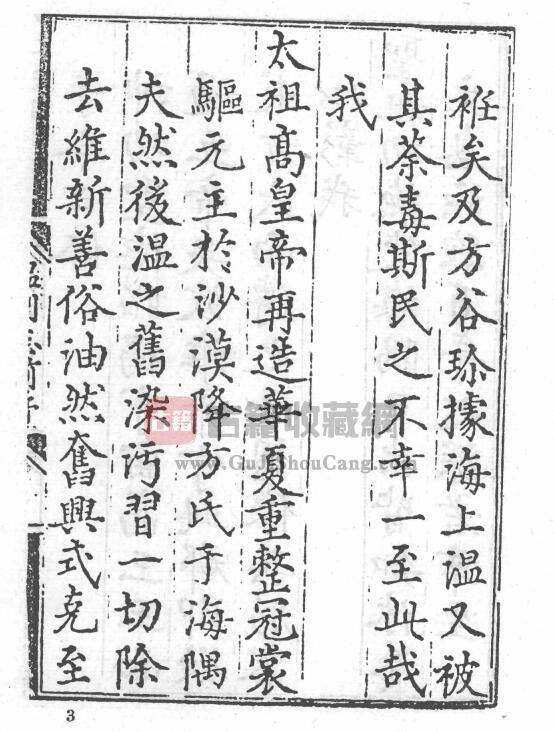 袵矣及方谷珍據海上溫又被
其荼毒斯民之不幸一至此哉
我
太祖高皇帝再造華夏重整冠裳
驅元主於沙漠降方氏于海隅
夫然後溫之舊染汚習一切除
去維新善俗油然奮興式克至
古籍
古籍收藏網
www.GuJiShouCang.com
3